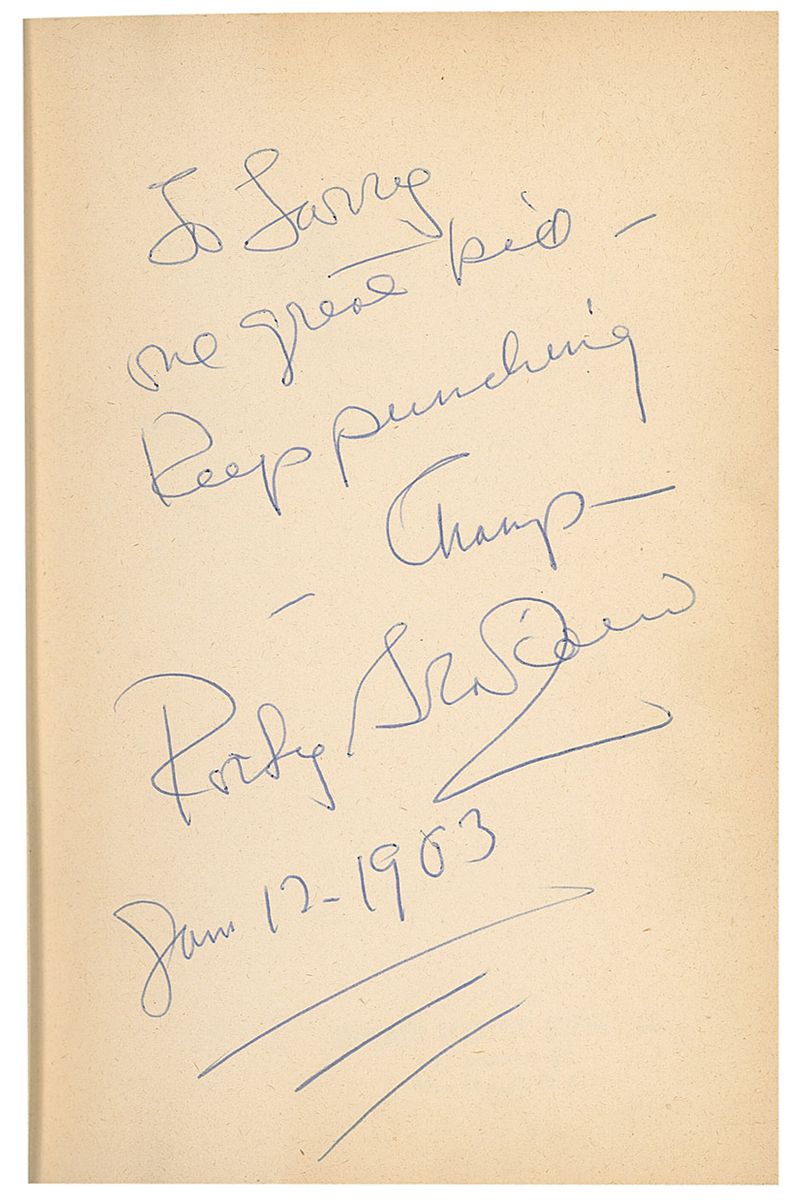 To Larry
one great kid -
Keep punching
- Champ -
Rocky Graziano
Jan 12-1963